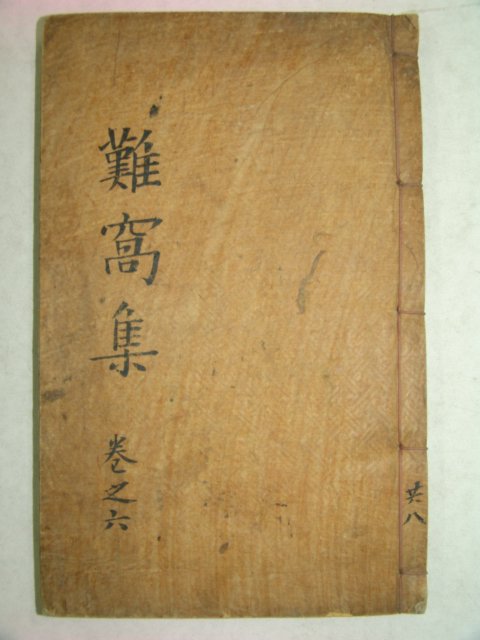 難窩集 卷之六
共八